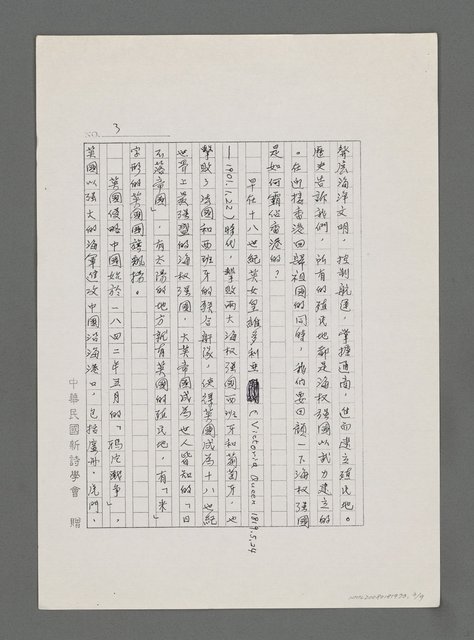 NO. 3
發展海洋文明,控制航道,掌握通商,進而建立殖民地。
歷史告訴我們,所有的殖民地都是海权強國以武力建立的
。在迎接香港回歸祖國的同時,我們要回顧一下海权強國
是如何霸佔香港的?
早在十八世紀英女皇維多利亞(Victoria Queen 1819.5.24
—1901.1.22)時代,擊敗兩大海权強國西班牙和葡萄牙,也
擊敗了法國和西班牙的聯合艦隊,使得英國成為十八世紀
世界上最強盛的海权強國,大英帝國成為世人皆知的「日
不落帝國」,有太陽的地方就有英國的殖民地,有「米」
字形的英國國旗飄揚。
英國侵略中國始於一八四二年五月的「鴉片戰爭」,
英國以強大的海軍進攻中國沿海港口,包括廈門、虎門、
中華民國新詩學會 贈